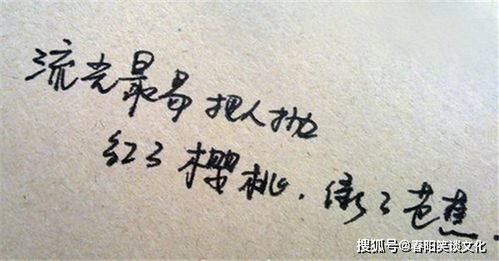 流光最易把人抛
红了樱桃.绿了芭蕉.
搜狐号@春阳笑谈文化